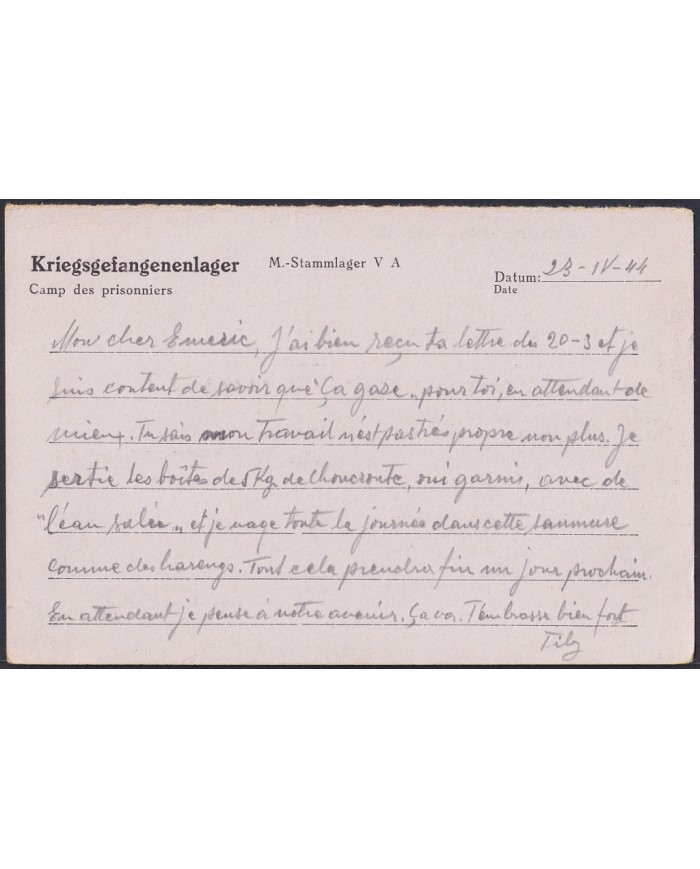 Kriegsgefangenenlager M.-Stammlager V A
Camp des prisonniers
Datum: 23-IV-44
Date
Mon cher Emeric, J'ai bien reçu ta lettre du 20-3 et je
suis content de savoir que "Ça gaze" pour toi, en attendant de
mieux. Tu sais mon travail n'est pas très propre non plus. Je
sertie les boîtes de 5 Kg de choucroute, garnis, avec de
"l'eau salée" et je nage toute la journée dans cette saumure
comme des harengs. Tout cela prendra fin un jour prochain.
En attendant je pense à notre avenir. Ça va. T'embrasse bien fort